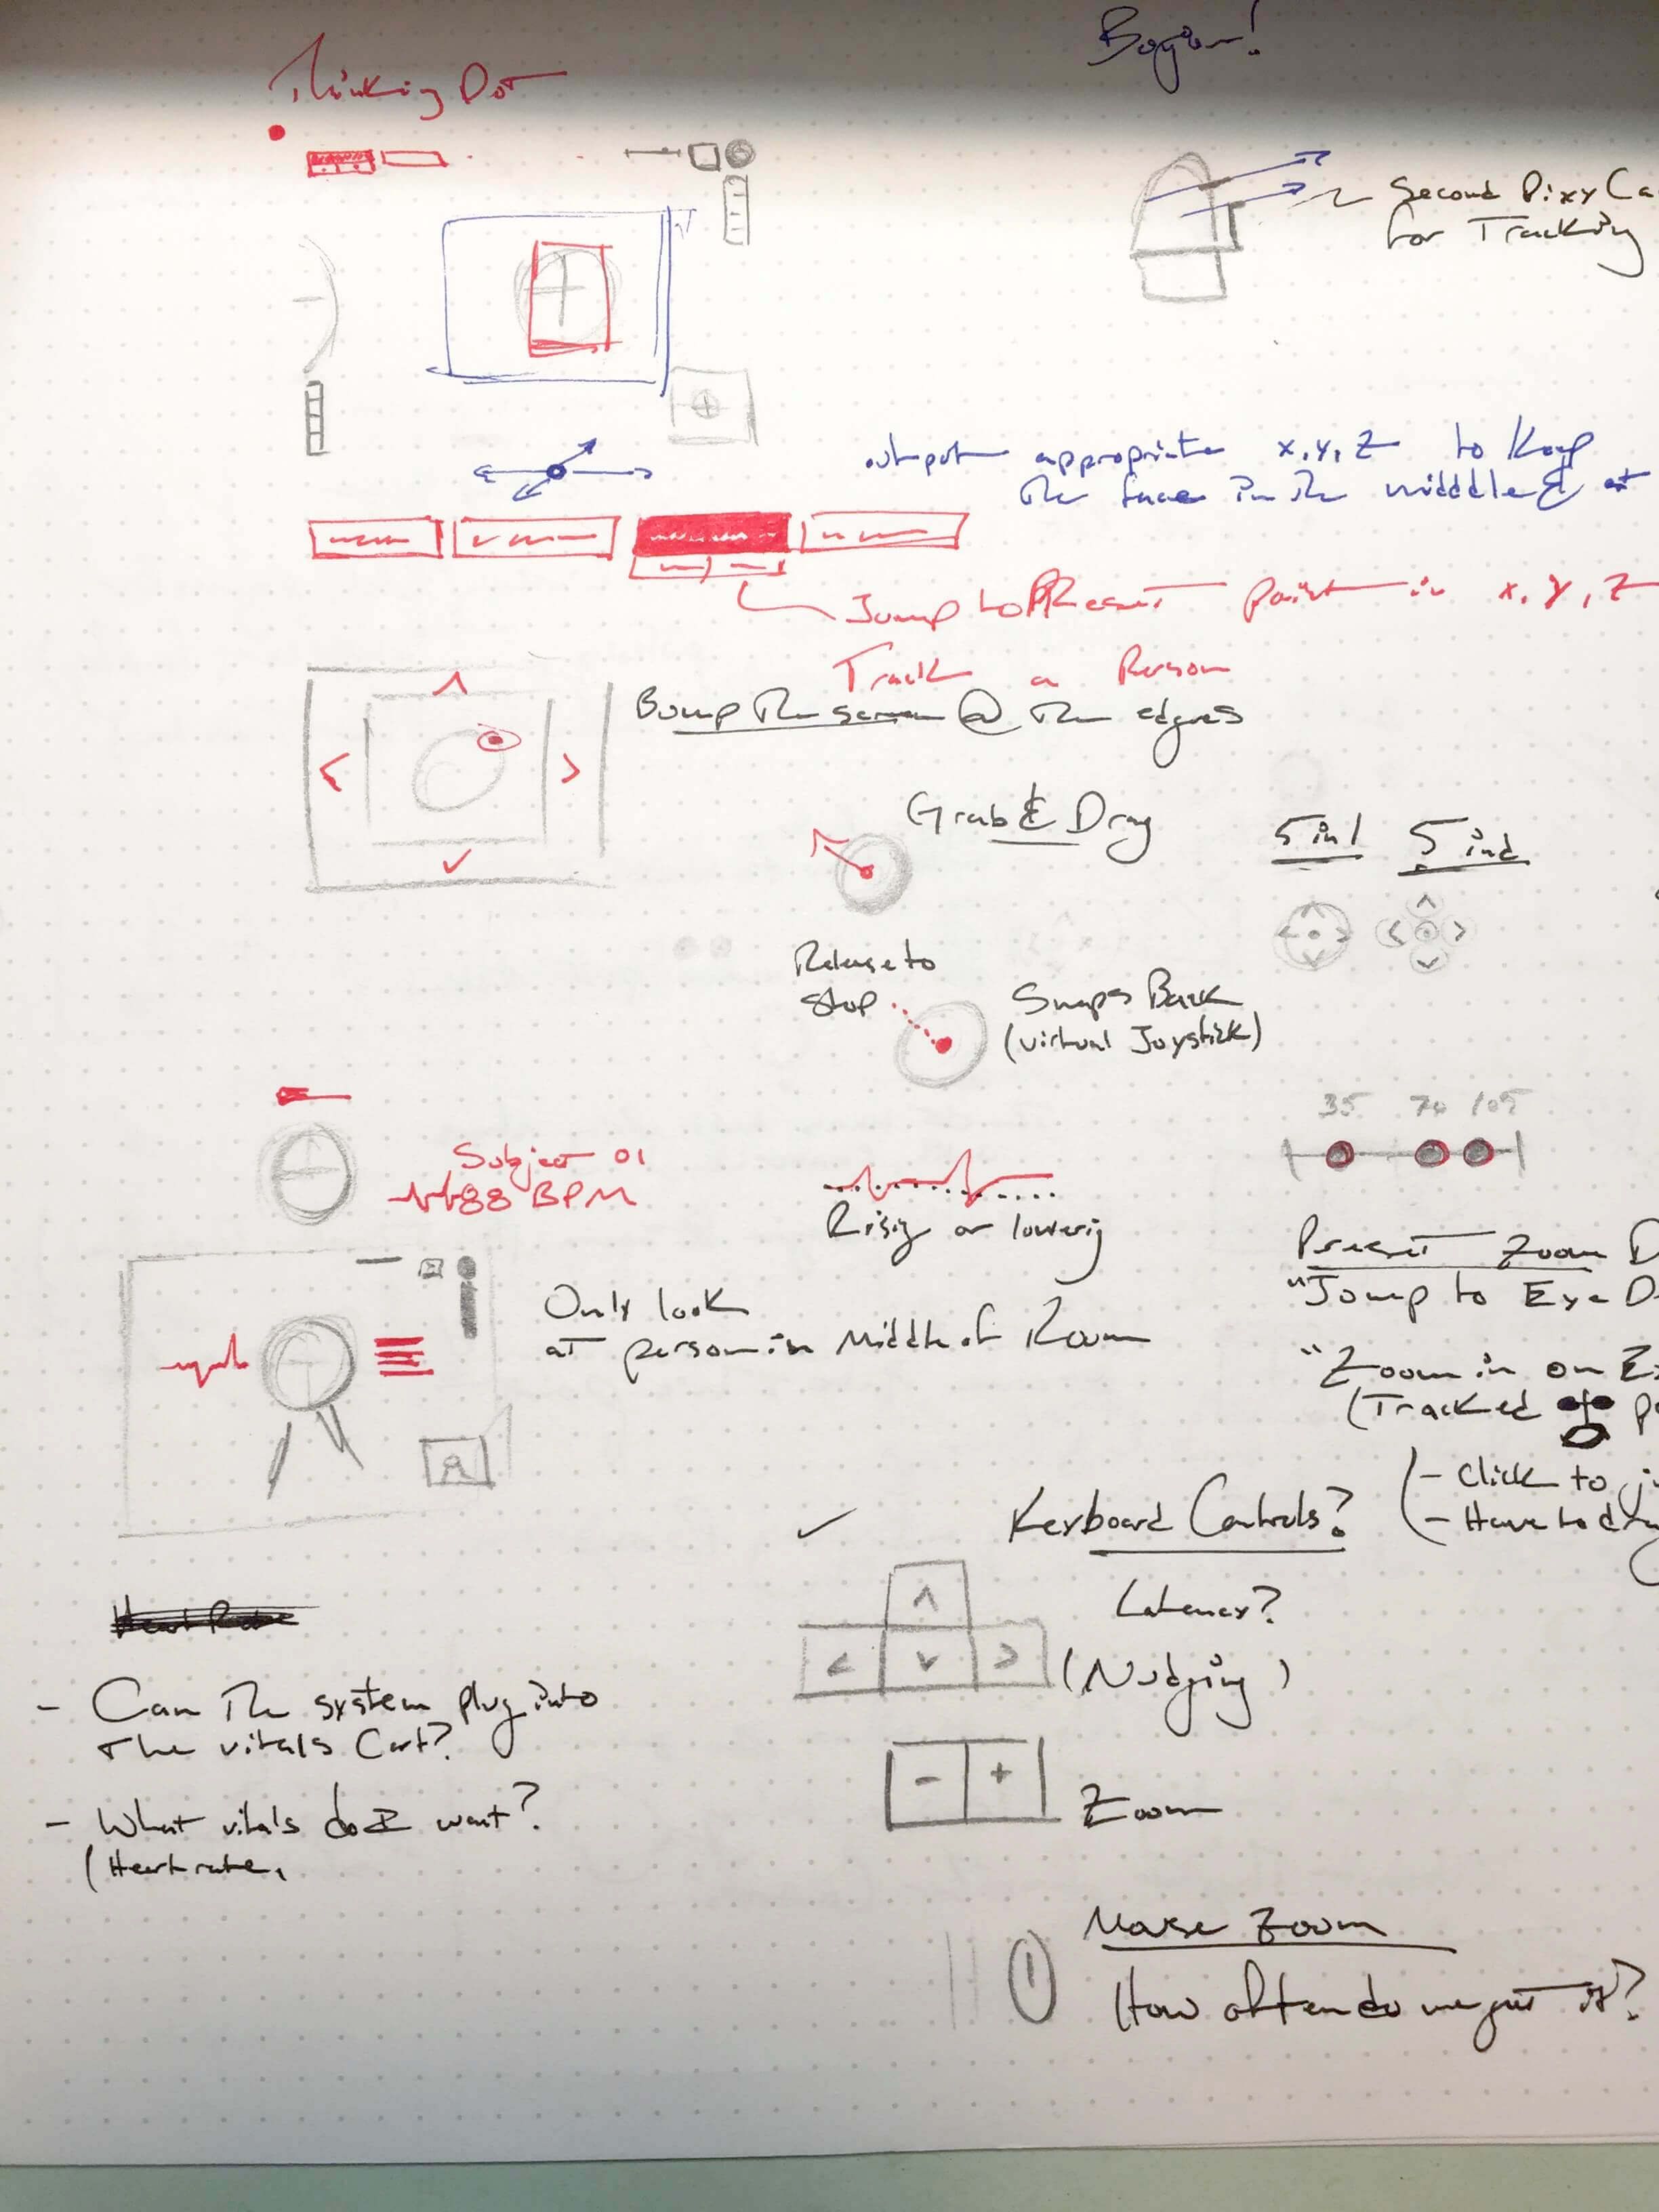 Thinking Dot
Second Pixy Ca
for Tracking
output appropriate x, y, z to keep
the face in the midddle & at
Jump to PReset point in x, y, z
Track a Person
Bump The screen @ The edges
Grab & Drag
5 in 1
5 ind
Release to
Stop
Snaps Back
(virtual Joystick)
35 70 105
Subject 01
88 BPM
Rising or lowering
Preset Zoom D
"Jump to Eye D
Only look
at person in Middle of Room
"Zoom in on Ex
(Tracked
Keyboard Controls?
- Click to ju
- Have to dr
Heart Rate
Latency?
(Nudging)
- Can The system plug into
The vitals Cart?
- + Zoom
- What vitals do I want?
(Heart rate,
Mouse Zoom
How often do we get it?